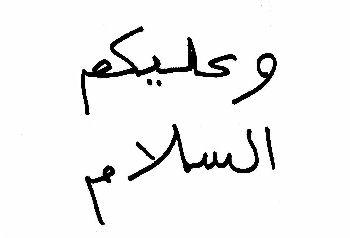 وعليكم
السلام